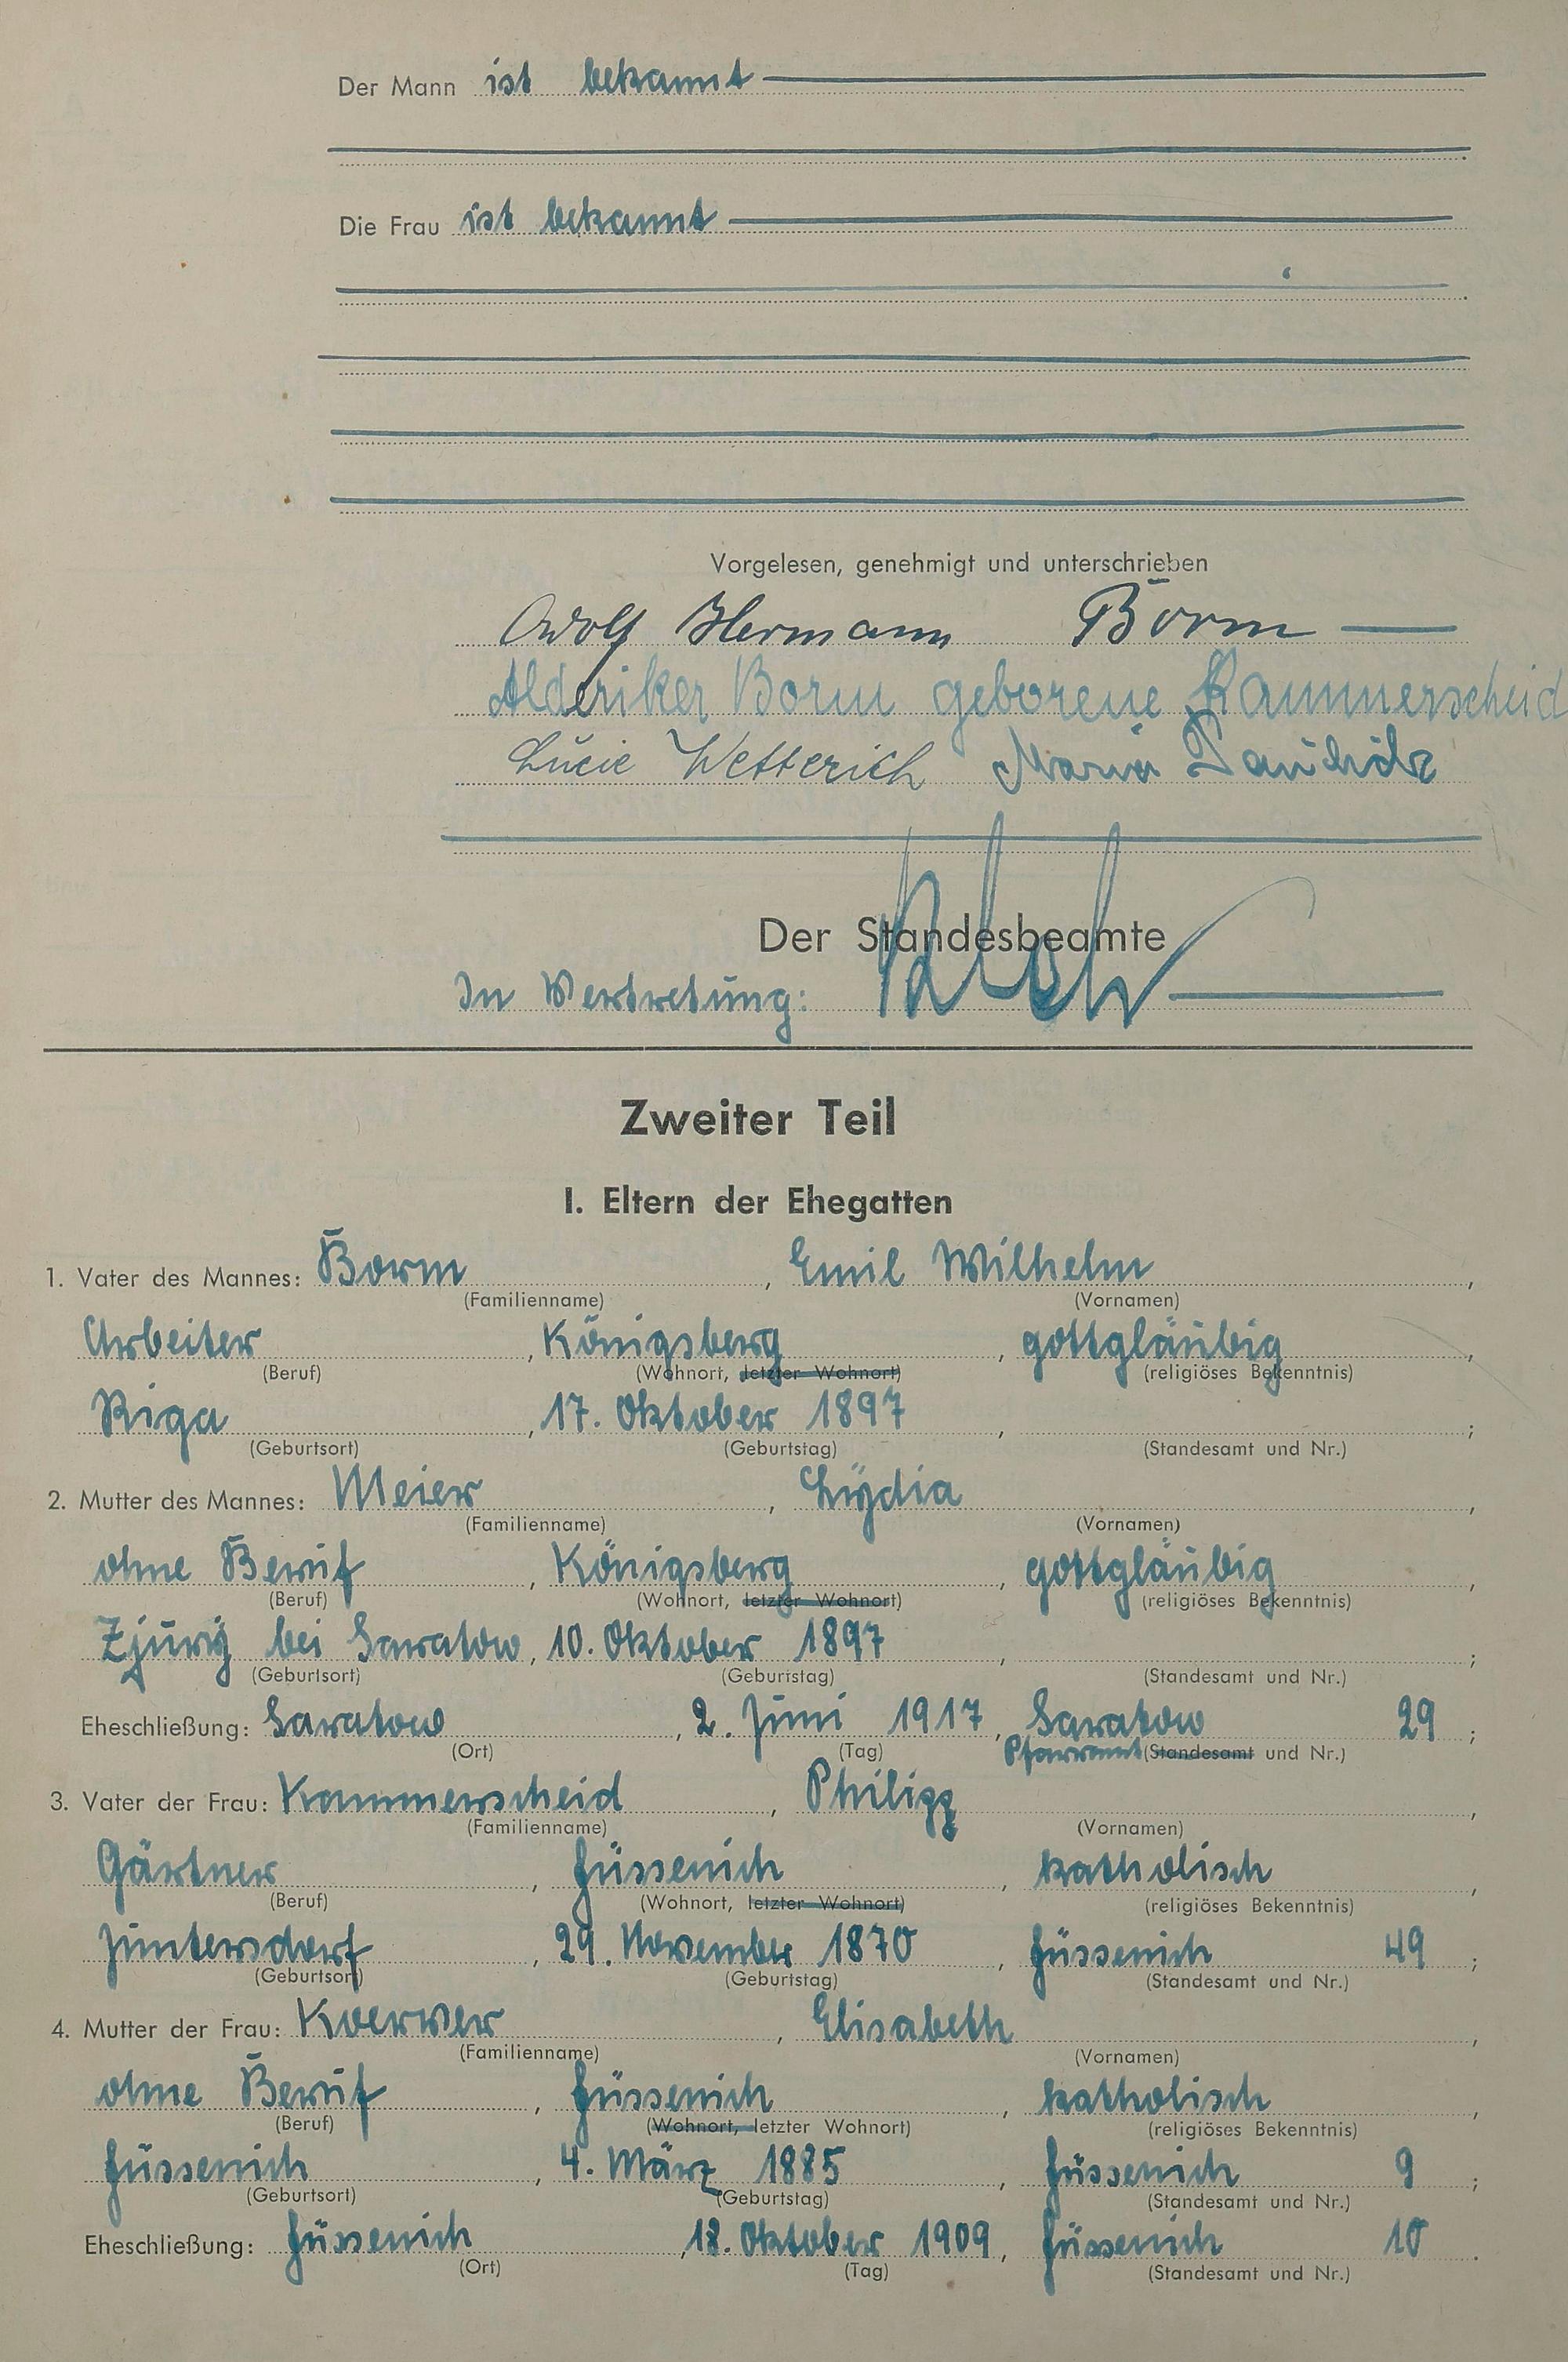 Der Mann ist bekannt
Die Frau ist bekannt
Vorgelesen, genehmigt und unterschrieben
Adolf Hermann Borm
Alderiker Borm geborene Kammerscheid
Lucie Wetterich Maria
Der Standesbeamte
In Vertretung:
Zweiter Teil
I. Eltern der Ehegatten
1. Vater des Mannes: Borm, Emil Wilhelm,
(Familienname) (Vornamen)
Arbeiter, Königsberg, gottgläubig,
(Beruf) (Wohnort, letzter Wohnort) (religiöses Bekenntnis)
Riga, 17. Oktober 1897, ;
(Geburtsort) (Geburtstag) (Standesamt und Nr.)
2. Mutter des Mannes: Meier, Lydia,
(Familienname) (Vornamen)
ohne Beruf, Königsberg, gottgläubig,
(Beruf) (Wohnort, letzter Wohnort) (religiöses Bekenntnis)
Zjurig bei Saratow, 10. Oktober 1897, ;
(Geburtsort) (Geburtstag) (Standesamt und Nr.)
Eheschließung: Saratow, 2. Juni 1917, Saratow 29;
(Ort) (Tag) Pfarramt (Standesamt und Nr.)
3. Vater der Frau: Kammerscheid, Philipp,
(Familienname) (Vornamen)
Gärtner, Füssenich, katholisch,
(Beruf) (Wohnort, letzter Wohnort) (religiöses Bekenntnis)
Juntersdorf, 29. November 1870, Füssenich 49;
(Geburtsort) (Geburtstag) (Standesamt und Nr.)
4. Mutter der Frau: Koerver, Elisabeth,
(Familienname) (Vornamen)
ohne Beruf, Füssenich, katholisch,
(Beruf) (Wohnort, letzter Wohnort) (religiöses Bekenntnis)
Füssenich, 4. März 1885, Füssenich 9;
(Geburtsort) (Geburtstag) (Standesamt und Nr.)
Eheschließung: Füssenich, 18. Oktober 1909, Füssenich 10.
(Ort) (Tag) (Standesamt und Nr.)